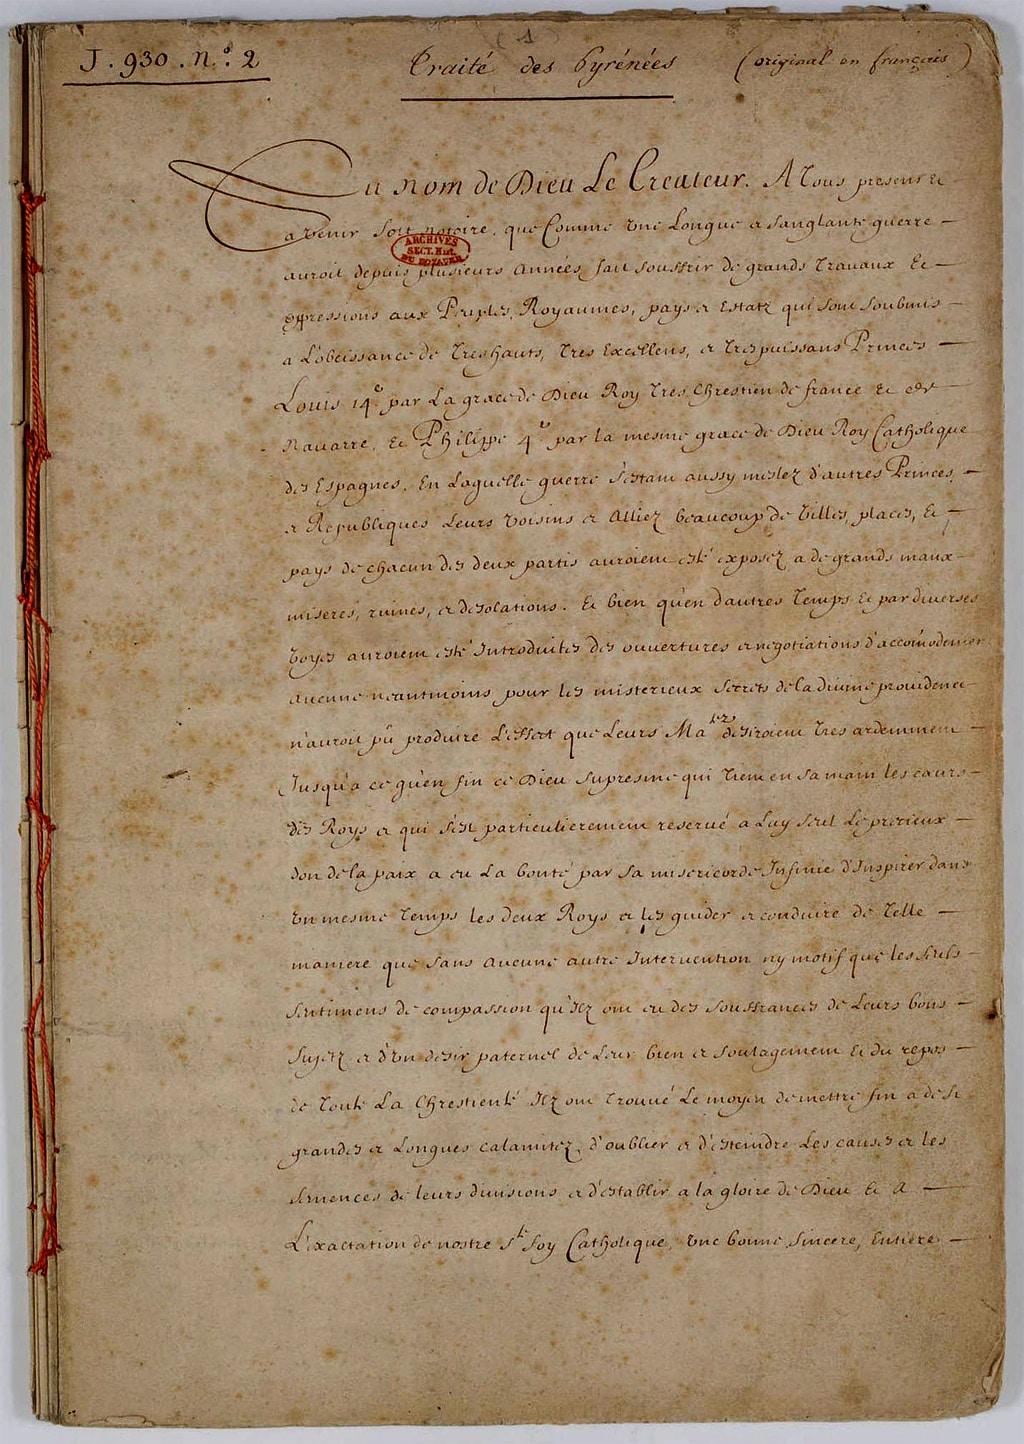 (1)
J. 930. N.º 2
Traité des Pyrénées
(original en français)
Au nom de Dieu Le Createur. A Tous presens et
a venir soit notoire, que Comme une Longue et sanglante guerre
ARCHIVES
SECT. HIST.
DU ROYAUME
auroit depuis plusieurs Années, fait souffrir de grands Travaux Et
oppressions aux Peuples, Royaumes, pays et Estatz qui sont soubmis
a L'obeissance de Tres hauts, Tres Excellens, et Trespuissans Princes
Louis 14e par La grace de Dieu Roy Tres Chrestien de france Et de
Navarre, Et Philippe 4e par la mesme grace de Dieu Roy Catholique
des Espagnes. En Laquelle guerre s'estant aussy meslez d'autres Princes,
et Republiques Leurs voisins et Alliez beaucoup de villes, places, Et
pays de chacun des deux partis auroient esté exposez a de grands maux
miseres, ruines, et desolations. Et bien qu'en d'autres Temps Et par diverses
voyes auroient esté Introduites des ouvertures et negotiations d'accom̃odement
aucune neantmoins pour les misterieux secrets de la divine providence
n'auroit pû produire L'effect que Leurs Ma.tez desiroient Tres ardemment
Jusqu'a ce qu'en fin ce Dieu supresme qui Tient en sa main les cœurs
des Roys et qui s'est particulierement reservé a Luy seul Le precieux
don de la paix a eu La bonté par sa misericorde Infinie d'Inspirer dans
un mesme Temps les deux Roys et les guider et conduire de Telle
maniere que sans aucune autre Intervention ny motif que les seuls
sentimens de compassion qu'Ilz ont eu des souffrances de Leurs bons
sujetz et d'un desir paternel de Leur bien et soulagement Et du repos
de Toute La Chrestienté Ilz ont Trouvé Le moyen de mettre fin a de si
grandes et Longues calamitez, d'oublier et d'esteindre Les causes et les
semences de leurs divisions et d'establir a la gloire de Dieu Et A
L'exaltation de nostre s.te foy Catholique, une bonne, sincere, Entiere